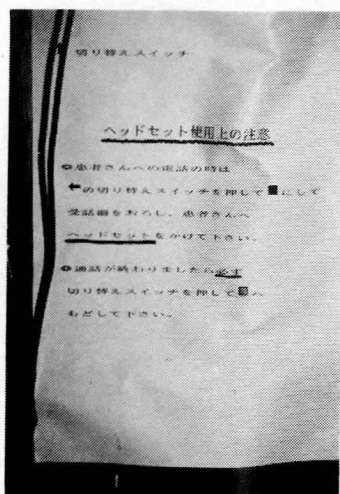 切り替えスイッチ
ヘッドセット使用上の注意
○患者さんへの電話の時は
←の切り替えスイッチを押して■にして
受話器をおろし、患者さんへ
ヘッドセットをかけて下さい。
○通話が終わりましたら必ず
切り替えスイッチを押して■へ
もどして下さい。